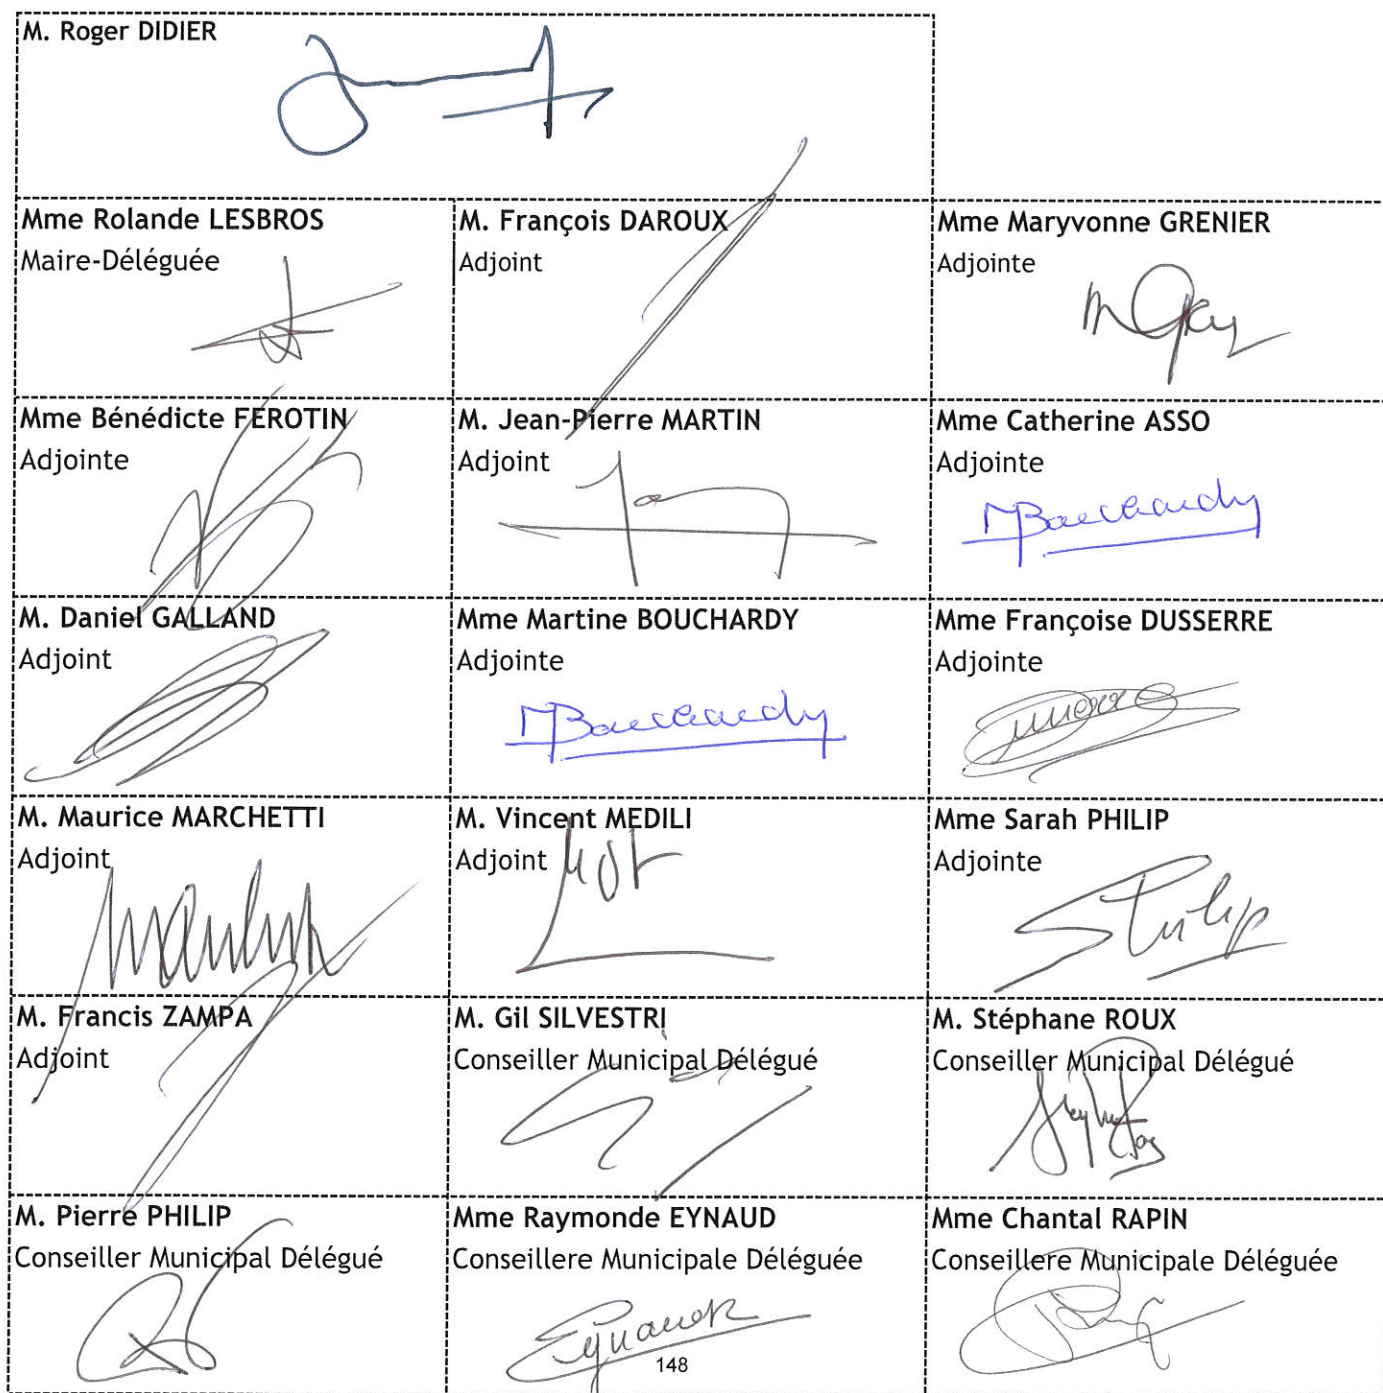 M. Roger DIDIER
Mme Rolande LESBROS
Maire-Déléguée
M. François DAROUX
Adjoint
Mme Maryvonne GRENIER
Adjointe
Mme Bénédicte FEROTIN
Adjointe
M. Jean-Pierre MARTIN
Adjoint
Mme Catherine ASSO
Adjointe
MBouchardy
M. Daniel GALLAND
Adjoint
Mme Martine BOUCHARDY
Adjointe
MBouchardy
Mme Françoise DUSSERRE
Adjointe
M. Maurice MARCHETTI
Adjoint
M. Vincent MEDILI
Adjoint
Mme Sarah PHILIP
Adjointe
SPhilip
M. Francis ZAMPA
Adjoint
M. Gil SILVESTRI
Conseiller Municipal Délégué
M. Stéphane ROUX
Conseiller Municipal Délégué
M. Pierre PHILIP
Conseiller Municipal Délégué
Mme Raymonde EYNAUD
Conseillere Municipale Déléguée
Eynaud
Mme Chantal RAPIN
Conseillere Municipale Déléguée
148